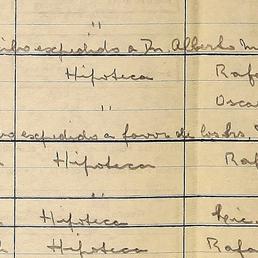 "
expedido a Dn. Alberto M
Hipoteca Rafa
" Osca
expedido a favor de los Srs.
Hipoteca Raf
"
Hipoteca
Hipoteca Rafa